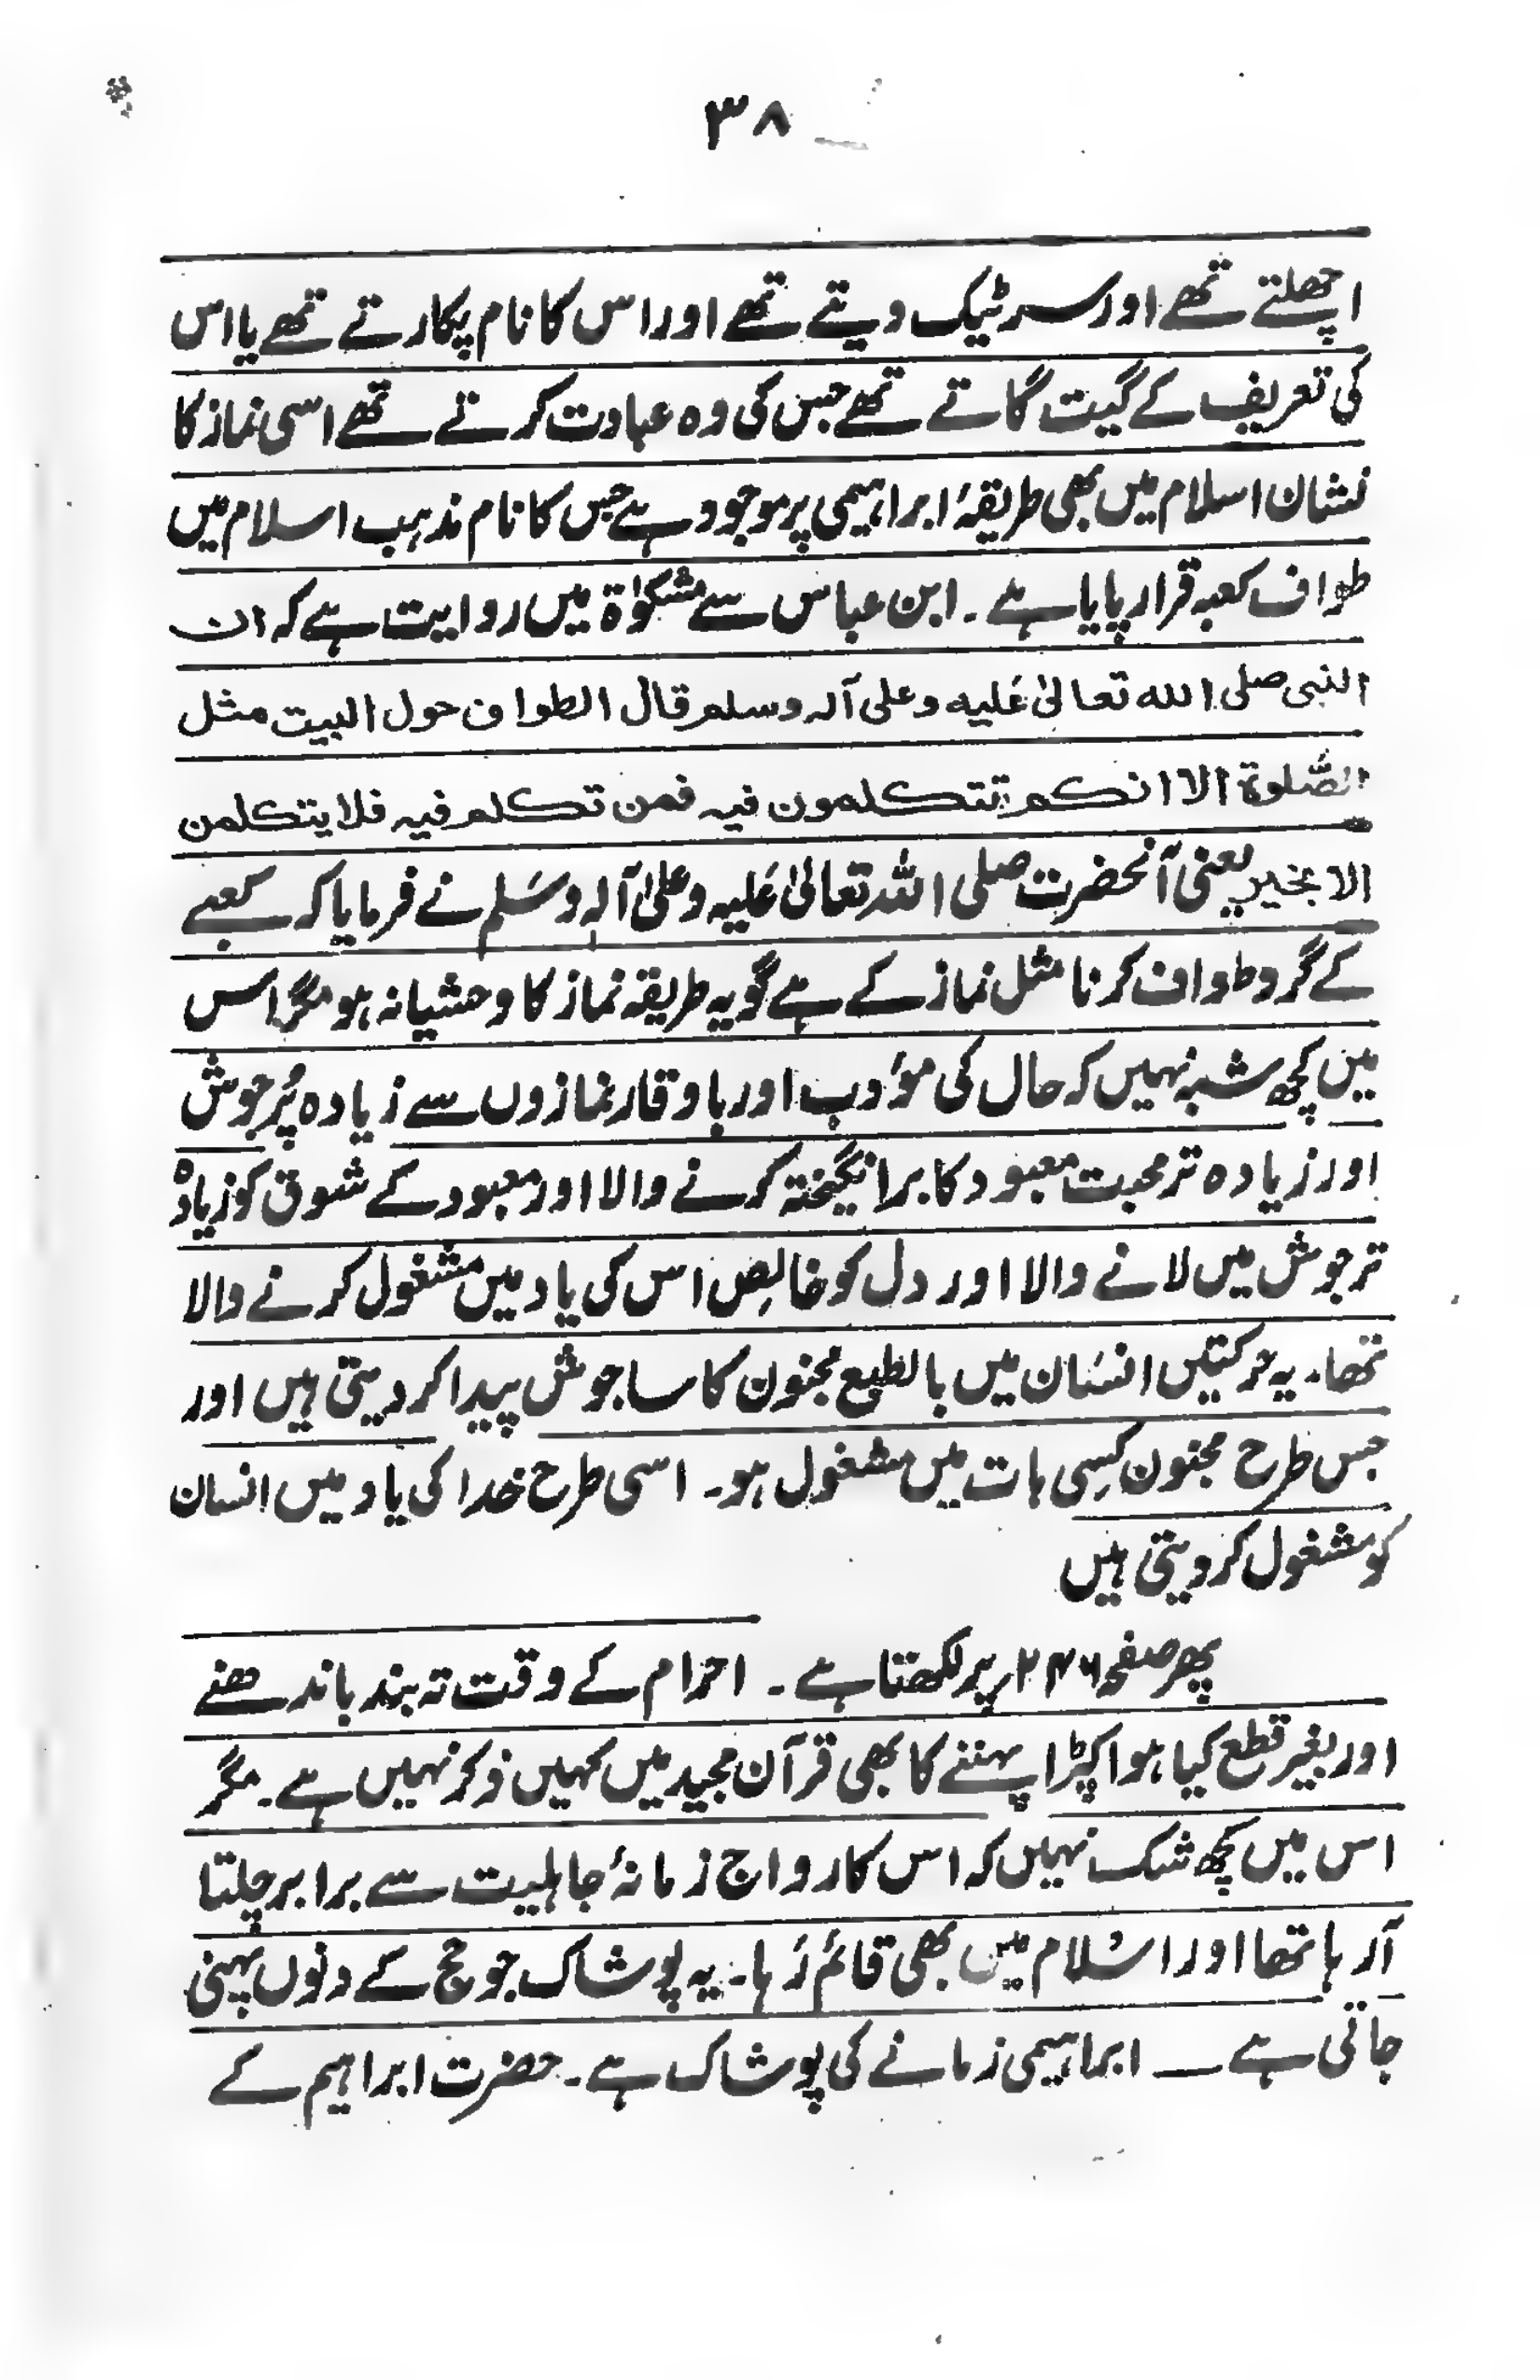 ۳۸
اچھلتے تھے اور سر ٹیک دیتے تھے اور اس کا نام پکارتے تھے یا اس
کی تعریف کے گیت گاتے تھے جس کی وہ عبادت کرتے تھے اسی نماز کا
نشان اسلام میں بھی طریقۂ ابراہیمی پر موجود ہے جس کا نام مذہب اسلام میں
طواف کعبہ قرار پایا ہے ۔ ابن عباس سے مشکوٰۃ میں روایت ہے کہ ان
النبی صلی اللہ تعالیٰ عَلیہ وعلی آلہ وسلم قال الطواف حول البیت مثل
الصَّلوۃ الا انکم تتکلمون فیہ فمن تکلم فیہ فلا یتکلمن
الا بخیر یعنی آنحضرت صلی اللہ تعالیٰ عَلیہ وعلیٰ آلہٖ وسَلم نے فرمایا کہ کعبے
کے گرد طواف کرنا مثل نماز کے ہے گو یہ طریقہ نماز کا وحشیانہ ہو مگر اس
میں کچھ شبہ نہیں کہ حال کی مؤدب اور باوقار نمازوں سے زیادہ پُرجوش
اور زیادہ تر محبت معبود کا برانگیختہ کرنے والا اور معبود کے شوق کو زیادہ
تر جوش میں لانے والا اور دل کو خالِص اس کی یاد میں مشغول کرنے والا
تھا۔ یہ حرکتیں انسَان میں بالطبع مجنون کا سا جوش پیدا کر دیتی ہیں اور
جس طرح مجنون کِسِی بات میں مشغول ہو۔ اسی طرح خدا کی یاد میں انسان
کو مشغول کر دیتی ہیں
پھر صفحہ ۲۴۶ پر لکھتا ہے ۔ احرام کے وقت تہ بند باندھنے
اور بغیر قطع کیا ہوا کپڑا پہننے کا بھی قرآن مجید میں کہیں ذکر نہیں ہے۔ مگر
اس میں کچھ شک نہیں کہ اس کا رواج زمانۂ جاہلیت سے برابر چلتا
آرہا تھا اور اسْلام میں بھی قائم رَہا۔ یہ پوشاک جو حج کے دنوں پہنی
جاتی ہے ــ ابراہیمی زمانے کی پوشاک ہے۔ حضرت ابراہیم کے